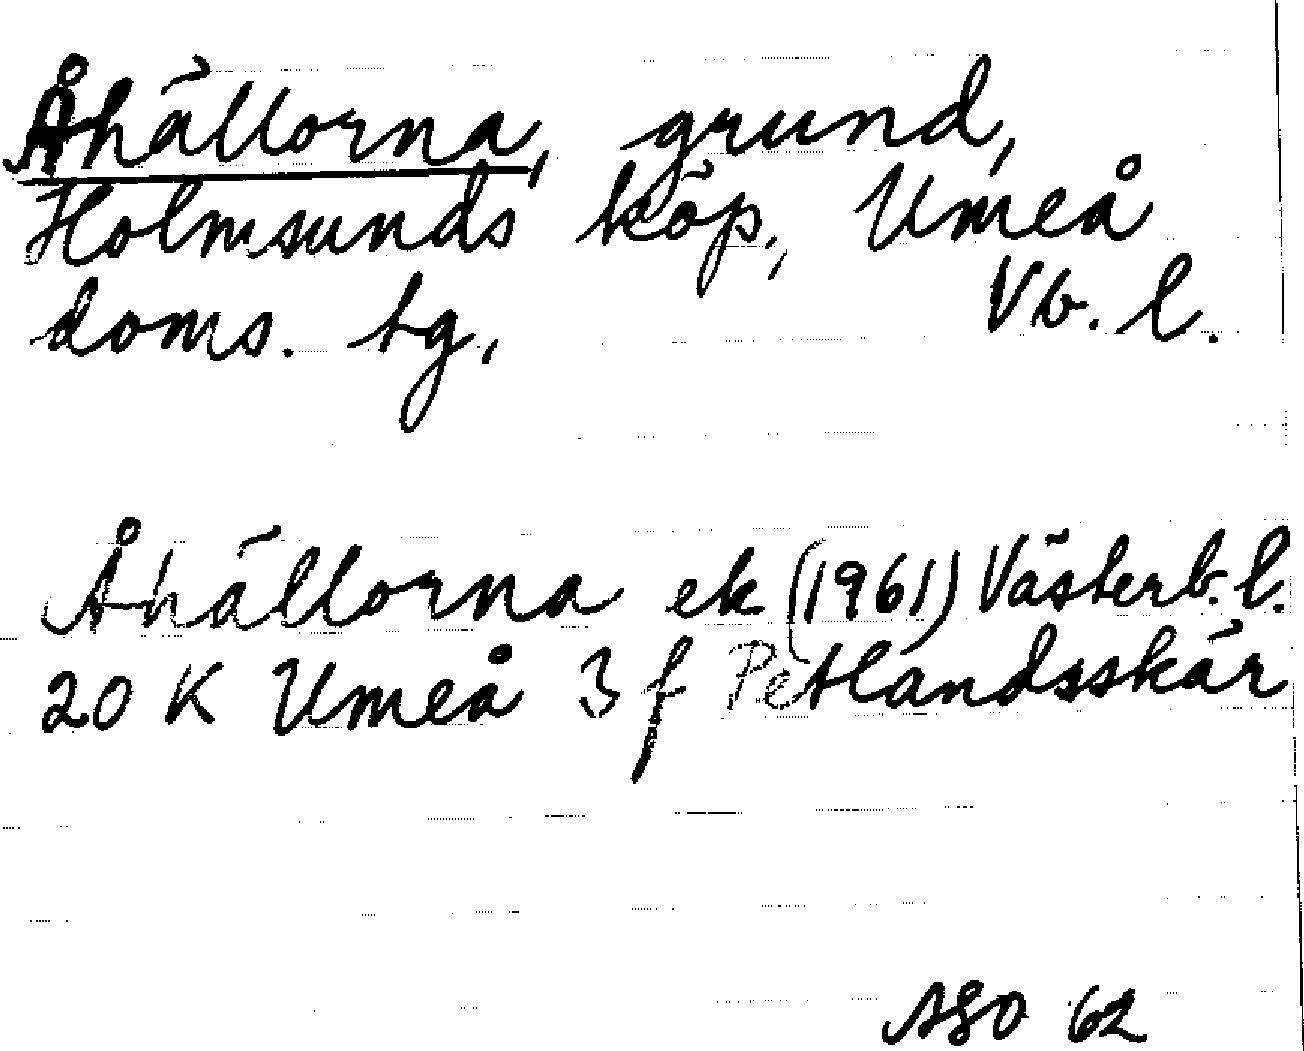 Åhällorna, grund,
Holmsunds köp., Umeå
doms. tg, Vb. l.
Åhällorna ek (1961) Västerb. l.
20 K Umeå 3 f Petlandsskär
ASO 62